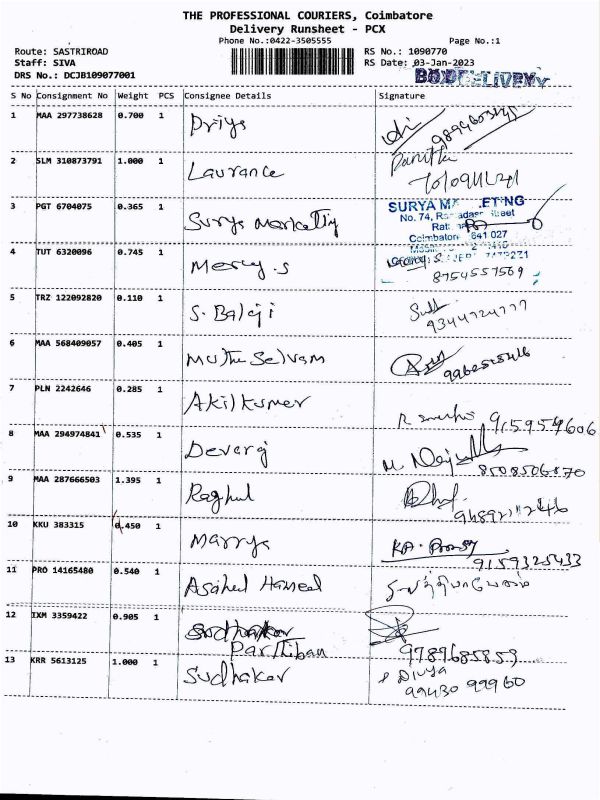 THE PROFESSIONAL COURIERS, Coimbatore
Delivery Runsheet - PCX
Phone No.:0422-3505555 Page No.:1
Route: SASTRIROAD RS No.: 1090770
Staff: SIVA RS Date: 03-Jan-2023
DRS No.: DCJB109077001
S No Consignment No Weight PCS Consignee Details Signature
1 MAA 297738628 0.700 1 Priya
2 SLM 310873791 1.000 1 Laurance
3 PGT 6704075 0.365 1 Surya Marketing
SURYA MA ETING
No. 74, Street
Coimbatore 641 027
4 TUT 6320096 0.745 1 Mercy.s
8754557569
5 TRZ 122092820 0.110 1 S. Balaji
9344724777
6 MAA 568409057 0.405 1 Muthu Selvam
7 PLN 2242646 0.285 1 Akilkumar
9159959606
8 MAA 294974841 0.535 1 Devaraj
8508506870
9 MAA 287666503 1.395 1 Raghul
10 KKU 383315 0.450 1 Marrys
9159325433
11 PRO 14165480 0.540 1 Asahel Hameed
12 IXM 3359422 0.905 1 Sudhakar
Parthiban
9789685859
13 KRR 5613125 1.000 1 Sudhakar Divya
99430 99960